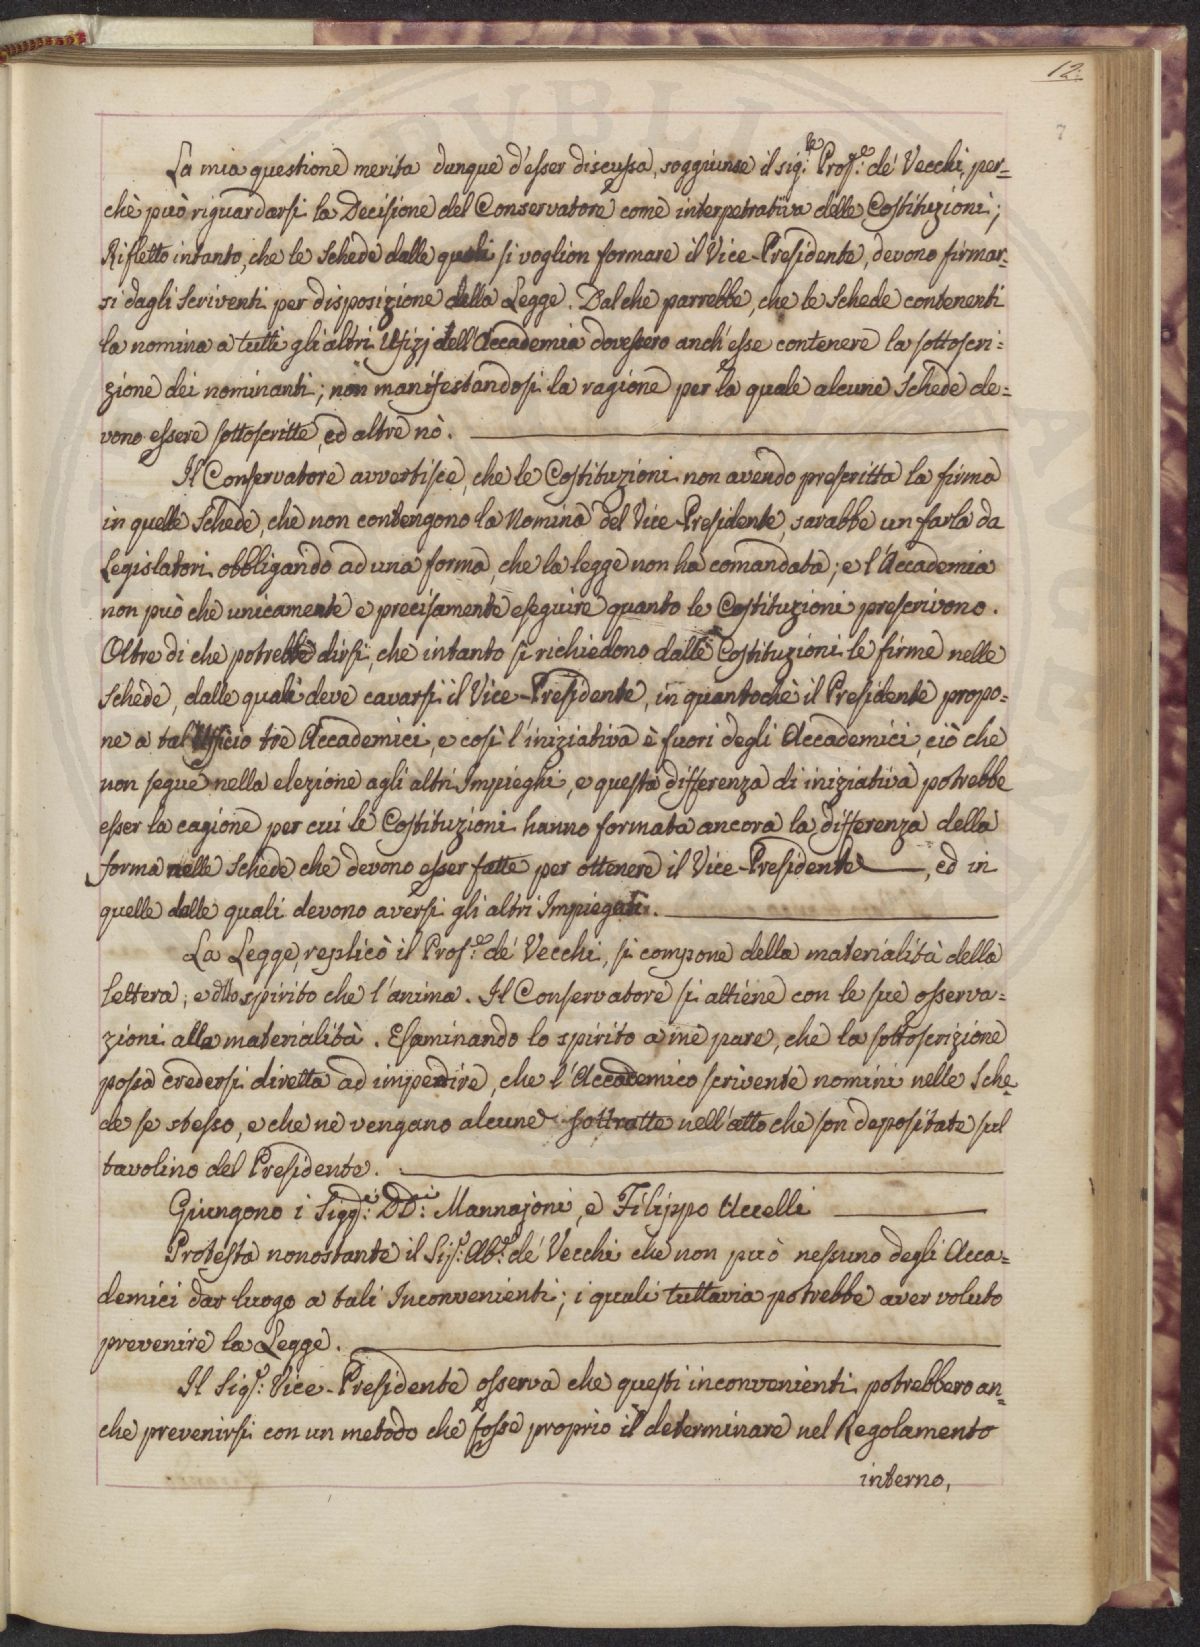 12.
7
La mia questione merita dunque d'esser discussa, soggiunse il sig.re Prof.e dè Vecchi, per=
chè può riguardarsi la Decisione del Conservatore come interpetrativa delle Costituzioni;
Rifletto intanto, che le Schede dalle quali si voglion formare il Vice-Presidente, devono firmar=
si dagli Scriventi per disposizione della Legge. Dal che parrebbe, che le Schede contenenti
la nomina a tutti gli altri Ufizj dell'Accademia dovessero anch'esse contenere la sottoscri=
zione dei nominanti; non manifestandosi la ragione per la quale alcune Schede de=
vono essere sottoscritte, ed altre nò.
Il Conservatore avvertisce, che le Costituzioni non avendo prescritta la firma
in quelle Schede, che non contengono la Nomina del Vice-Presidente, sarabbe un farla da
Legislatori obbligando ad una forma, che la legge non ha comandata; e l'Accademia
non può che unicamente e precisamente eseguire quanto le Costituzioni prescrivono.
Oltre di che potrebbe dirsi, che intanto si richiedono dalle Costituzioni le firme nelle
Schede, dalle quali deve cavarsi il Vice-Presidente, in quantochè il Presidente propo=
ne a tal Ufficio tre Accademici, e così l'iniziativa è fuori degli Accademici, ciò che
non segue nella elezione agli altri Impieghi, e questa differenza di iniziativa potrebbe
esser la cagione per cui le Costituzioni hanno formata ancora la differenza della
forma nelle Schede che devono esser fatte per ottenere il Vice-Presidente, ed in
quelle dalle quali devono aversi gli altri Impiegati.
La Legge, replicò il Prof.e dè Vecchi, si compone della materialità della
lettera; e dello spirito che l'anima. Il Conservatore si attiene con le sue osserva=
zioni alla materialità. Esaminando lo spirito a me pare, che la sottoscrizione
possa credersi diretta ad impedire, che l'Accademico scrivente nomini nelle Sche=
de se stesso, e che ne vengano alcune sottratte nell'atto che son depositate sul
tavolino del Presidente.
Giungono i Sigg.ri DD.ri Mannajoni, e Filippo Uccelli
Protesta nonostante il Sig.r Ab.e dè Vecchi che non può nessuno degli Acca=
demici dar luogo a tali Inconvenienti; i quali tuttavia potrebbe aver voluto
prevenire la Legge.
Il Sig.r Vice-Presidente osserva che questi inconvenienti potrebbero an=
che prevenirsi con un metodo che fosse proprio il determinare nel Regolamento
interno,